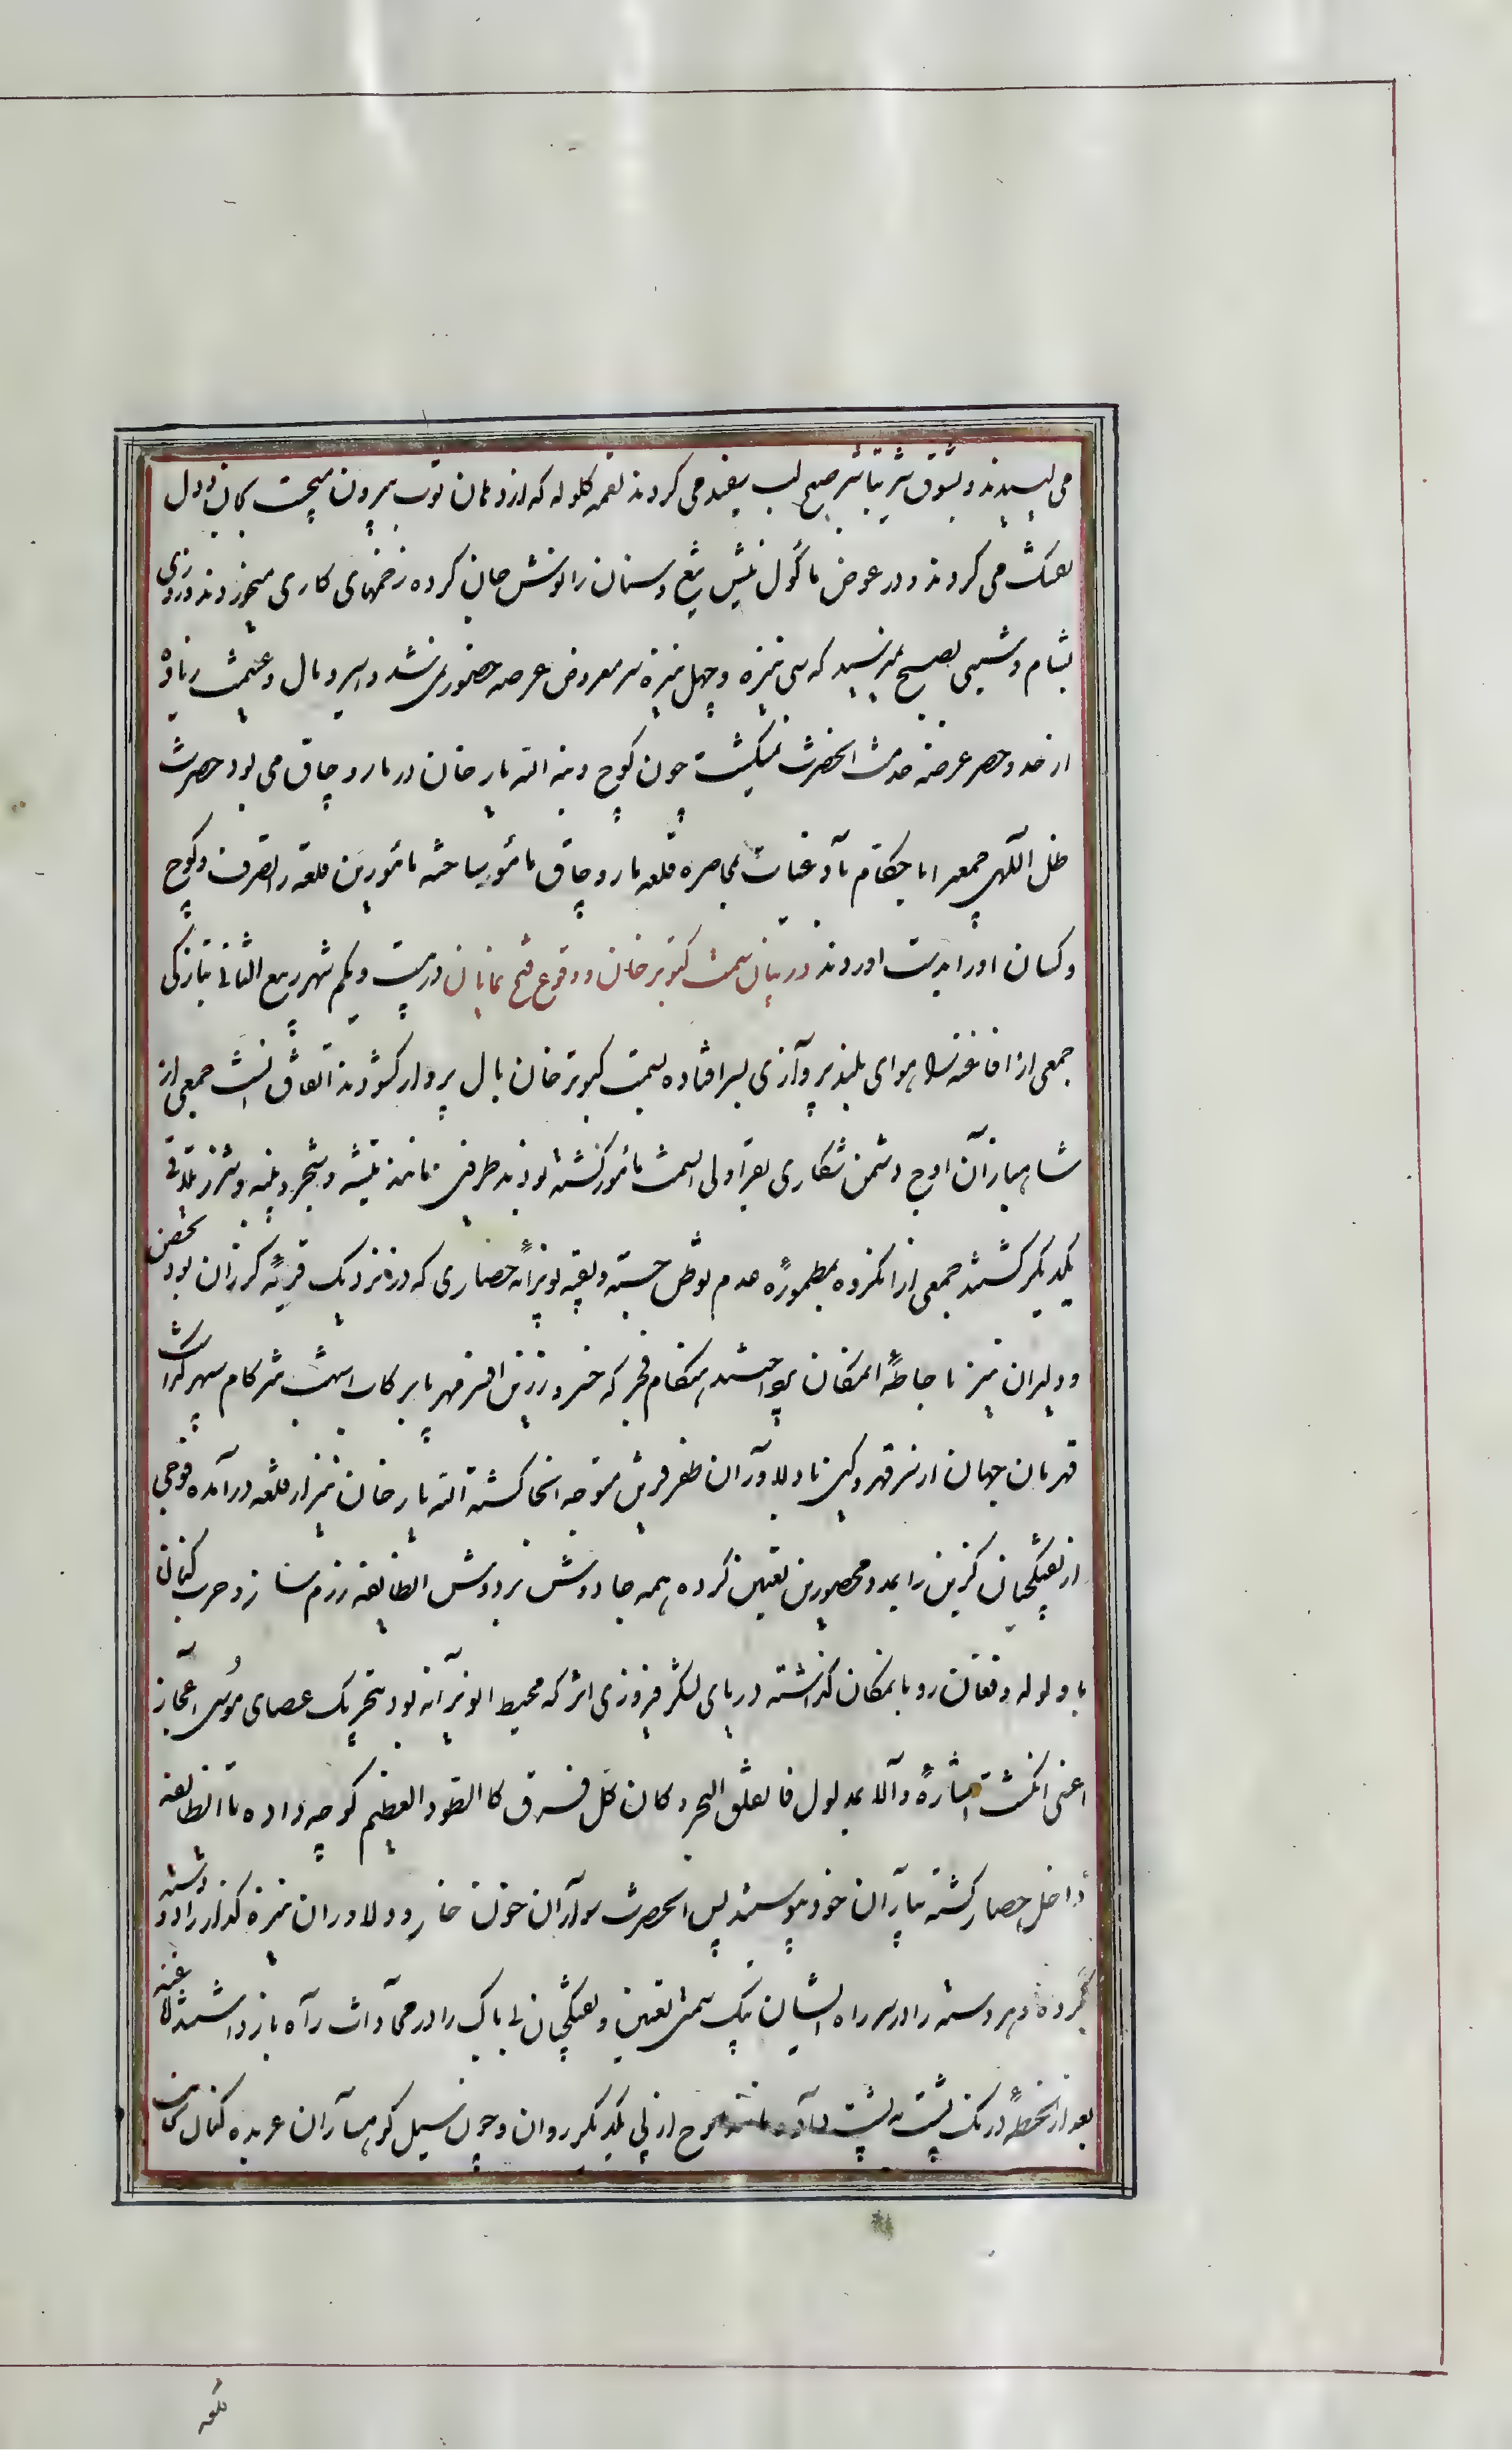 می لیسیدند و بشوق شیر تباشیر صبح لب سفید می کردند لقمه کلوله که از دهان توپ بیرون میجست بجان و دل
بفنک می کردند و در عوض ماکول نیش تیغ و سنان را نوش جان کرده زخمهای کاری میخوردند و روزی
بشام و شبی بصبح نمیرسید که سی نیزه و چهل نیزه سر معروض عرصه حضور نمی شد و اسیر و مال و غنیمت زیاده
از حد و حصر عرضه خدمت انحضرت نمیکشت چون کوچ و بنه الله یار خان در ماروچاق می بود حضرت
ظل اللهی جمعی را با حکام بادغیات بمحاصره قلعه ماروچاق مأمور ساخته مأمورین قلعه را تصرف و کوچ
و کسان او را بدست اوردند در بیان سمت کبوتر خان و وقوع فتح نمایان در بیست و یکم شهر ربیع الثانی بتازکی
جمعی از افاغنه را هوای بلند پروازی بسر افتاده بسمت کبوتر خان بال پرواز کشودند اتفاق است جمعی از
شاهبازان اوج دشمن شکاری بقراولی انسمت مأمور کشته بودند طرفین مانند تیشه و شجر و پنبه و شرر تلاقی
یکدیکر کشتند جمعی از انکروه بمطمورهٔ عدم توطن جسته و بقیه بویرانهٔ حصاری که در نزدیک قریهٔ کرزان بود تحصن
و دلیران نیز باحاطهٔ المکان پرداختند هنکام فجر که خسرو زرین افسر مهر پا بر کاب اشهب شیر کام سپهر کذاشت
قهرمان جهان از سر قهر و کین با دلاوران ظفر قرین متوجه انجا کشته الله یار خان نیز از قلعه در آمده فوجی
از تفنکچیان کزین را بمدد محصورین تعیین کرده همه جا دوش بر دوش انطایفه رزم ساز و حرب کنان
با ولوله و فغان رو بانمکان کذاشته دریای لشکر فیروزی اثر که محیط انویرانه بود بتحریک عصای موسی اعجاز
اعنی انکشت اشارهٔ والا بمدلول فانفلق البحر و کان کل فرق کالطود العظیم کوچه داده تا انطایفه
داخل حصار کشته بیاران خود پیوستند پس انحضرت سواران خون خوار و دلاوران نیزه کذار را دو دسته
کرده هر دسته را در سر راه ایشان بیک سمتی تعیین و تفنکچیان بی باک را در محاذات راه باز داشتند افاغنه
بعد از لحظهٔ درنک پشت به پشت داده مانند موج از پی یکدیکر روان و چون سیل کوهساران عربده کنان